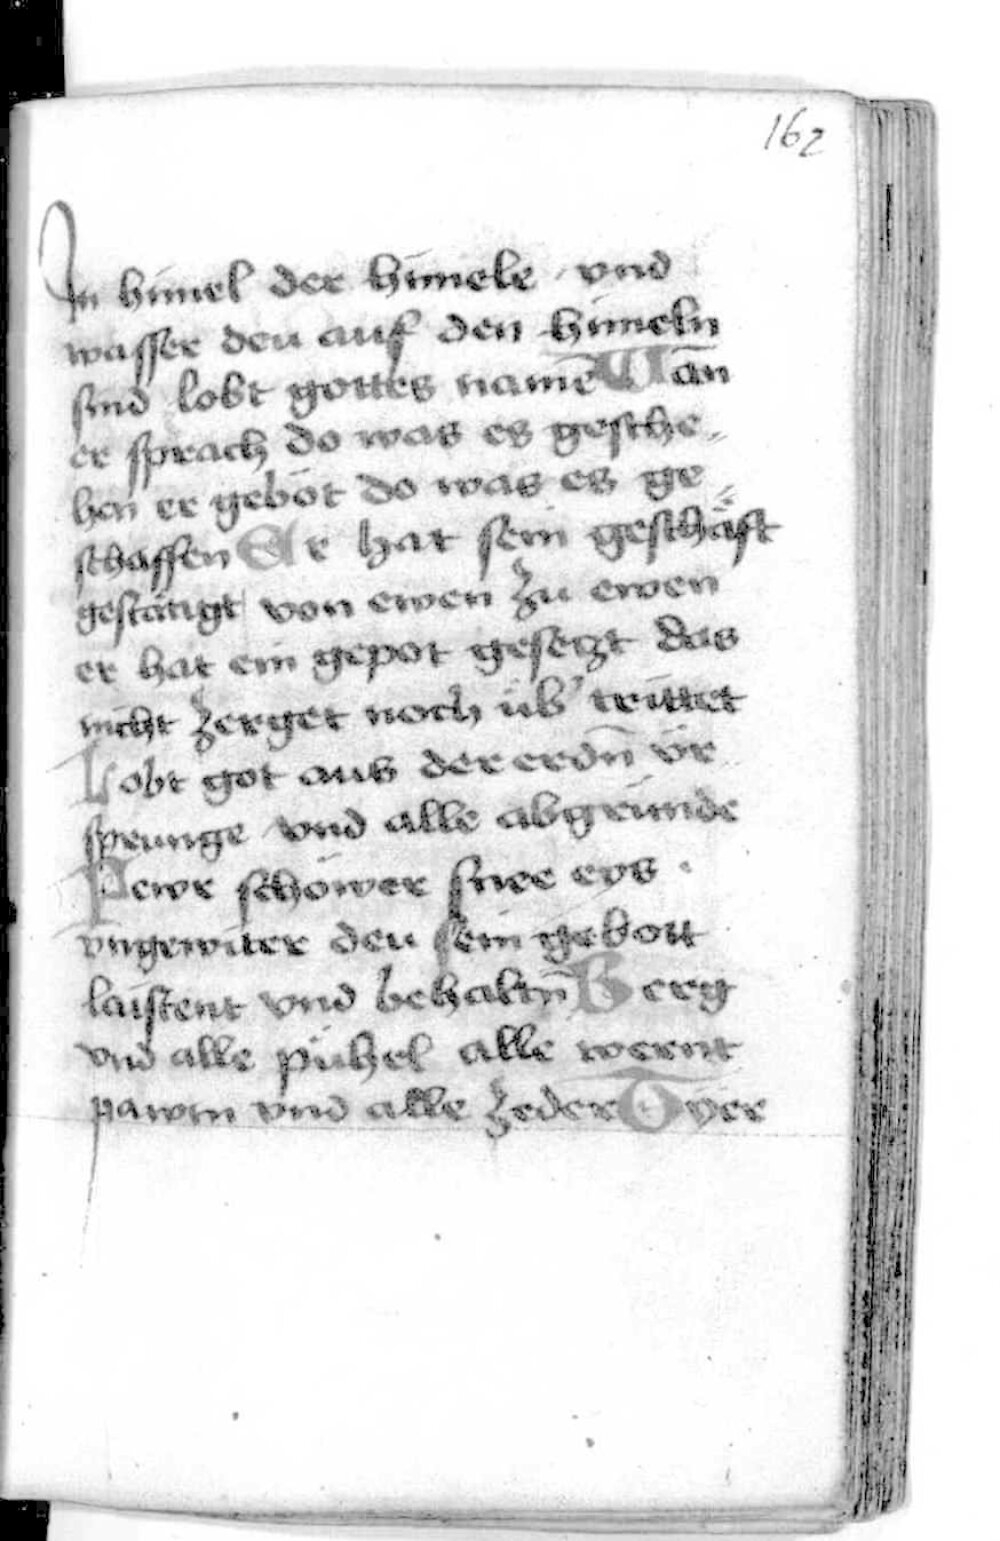 162
In himel der himele vnd
wasser deu auf den himeln
sind lobt gottes namē Wān
er sprach do was es gesche„
hen er gebot do was es ge„
schaffen Er hat sein geschäft
gestätigt von ewen zu ewen
er hat ein gepot gesetzt das
nicht zerget noch üb' trittet
Lobt got aus der erdn̄ vr
sprunge vnd alle abgrunde
Fewr schower snee eys ·
vngewiter deu sein gebott
laistent vnd behaltn̄ Berg
vnd alle pühel alle wernt
pawm vnd alle zeder Tyer